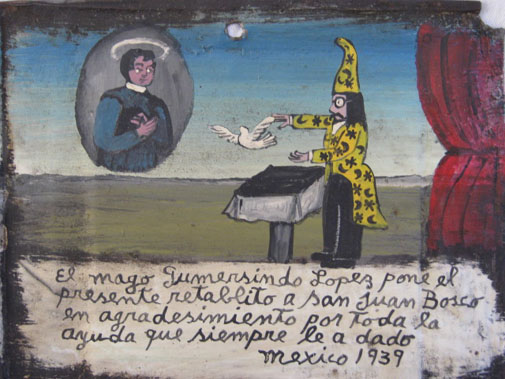 El mago Gumersindo Lopez pone el
presente retablito a san Juan Bosco
en agradesimiento por toda la
ayuda que siempre le a dado
Mexico 1939